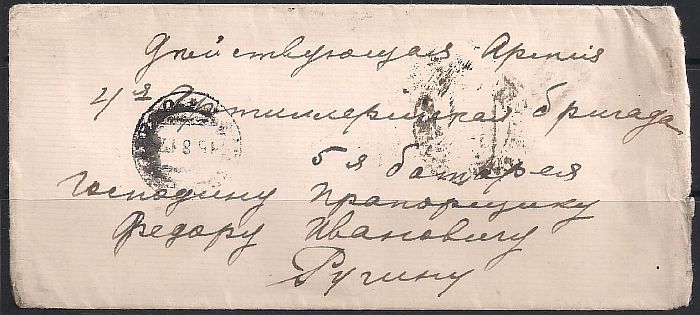 Действующая Армiя
4я Артиллерiйская бригада
5я батарея
Господину Прапорщику
Федору Ивановичу
Ругину
15.8.1